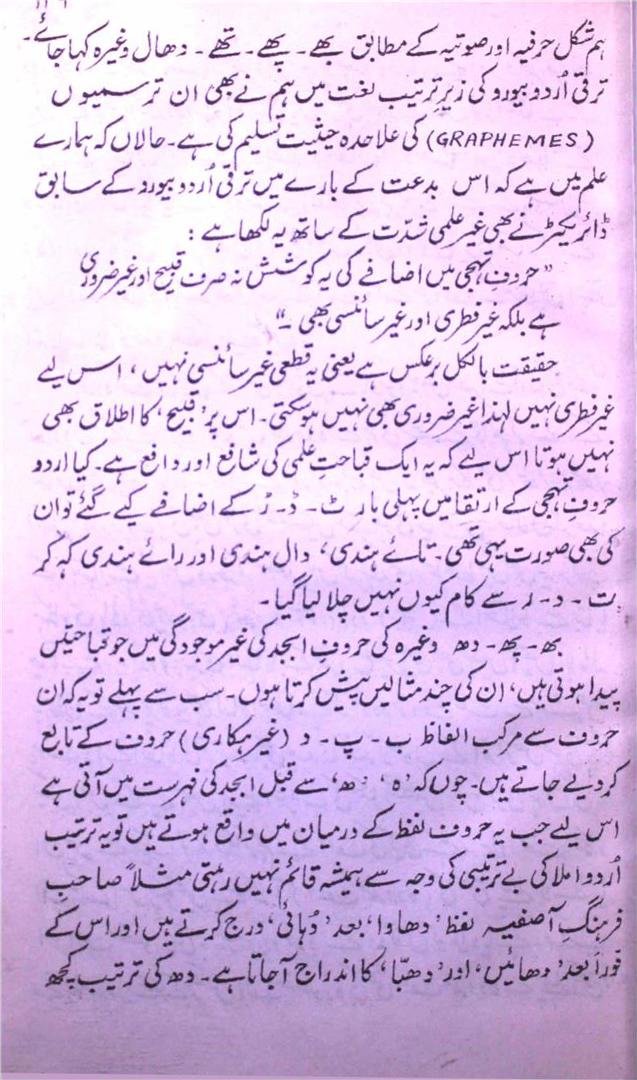 ہم شکل حرفیہ اور صوتیہ کے مطابق بھے۔ پھے۔ تھے۔ دھال وغیرہ کہا جائے۔
ترقی اُردو بیورو کی زیرِ ترتیب لغت میں ہم نے بھی ان ترسمیوں
(GRAPHEMES) کی علاحدہ حیثیت تسلیم کی ہے۔ حالاں کہ ہمارے
علم میں ہے کہ اس بدعت کے بارے میں ترقی اُردو بیورو کے سابق
ڈائریکٹر نے بھی غیر علمی شدّت کے ساتھ یہ لکھا ہے:
"حروفِ تہجی میں اضافے کی یہ کوشش نہ صرف قبیح اور غیر ضروری
ہے بلکہ غیر فطری اور غیر سائنسی بھی۔"
حقیقت بالکل برعکس ہے یعنی یہ قطعی غیر سائنسی نہیں، اس لیے
غیر فطری نہیں لہٰذا غیر ضروری بھی نہیں ہو سکتی۔ اس پر 'قبیح' کا اطلاق بھی
نہیں ہوتا اس لیے کہ یہ ایک قباحتِ علمی کی شافع اور دافع ہے۔ کیا اردو
حروفِ تہجی کے ارتقا میں پہلی بار ٹ۔ ڈ۔ ڑ کے اضافے کیے گئے تو ان
کی بھی صورت یہی تھی۔ تائے ہندی، دال ہندی اور رائے ہندی کہہ کر
ت۔ د۔ ر سے کام کیوں نہیں چلا لیا گیا۔
بھ۔ پھ۔ دھ وغیرہ کی حروف ابجد کی غیر موجودگی میں جو قباحتیں
پیدا ہوتی ہیں، ان کی چند مثالیں پیش کرتا ہوں۔ سب سے پہلے تو یہ کہ ان
حروف سے مرکب الفاظ ب۔ پ۔ د (غیر ہکاری) حروف کے تابع
کر دیے جاتے ہیں۔ چوں کہ 'ہ'، 'ھ' سے قبل ابجد کی فہرست میں آتی ہے
اس لیے جب یہ حروف لفظ کے درمیان میں واقع ہوتے ہیں تو یہ ترتیب
اُردو املا کی بے ترتیبی کی وجہ سے ہمیشہ قائم نہیں رہتی مثلاً صاحبِ
فرہنگِ آصفیہ لفظ 'دھاوا' بعد 'دُہائی' درج کرتے ہیں اور اس کے
فوراً بعد 'دھائیں' اور 'دھبّا' کا اندراج آ جاتا ہے۔ دھ کی ترتیب کچھ